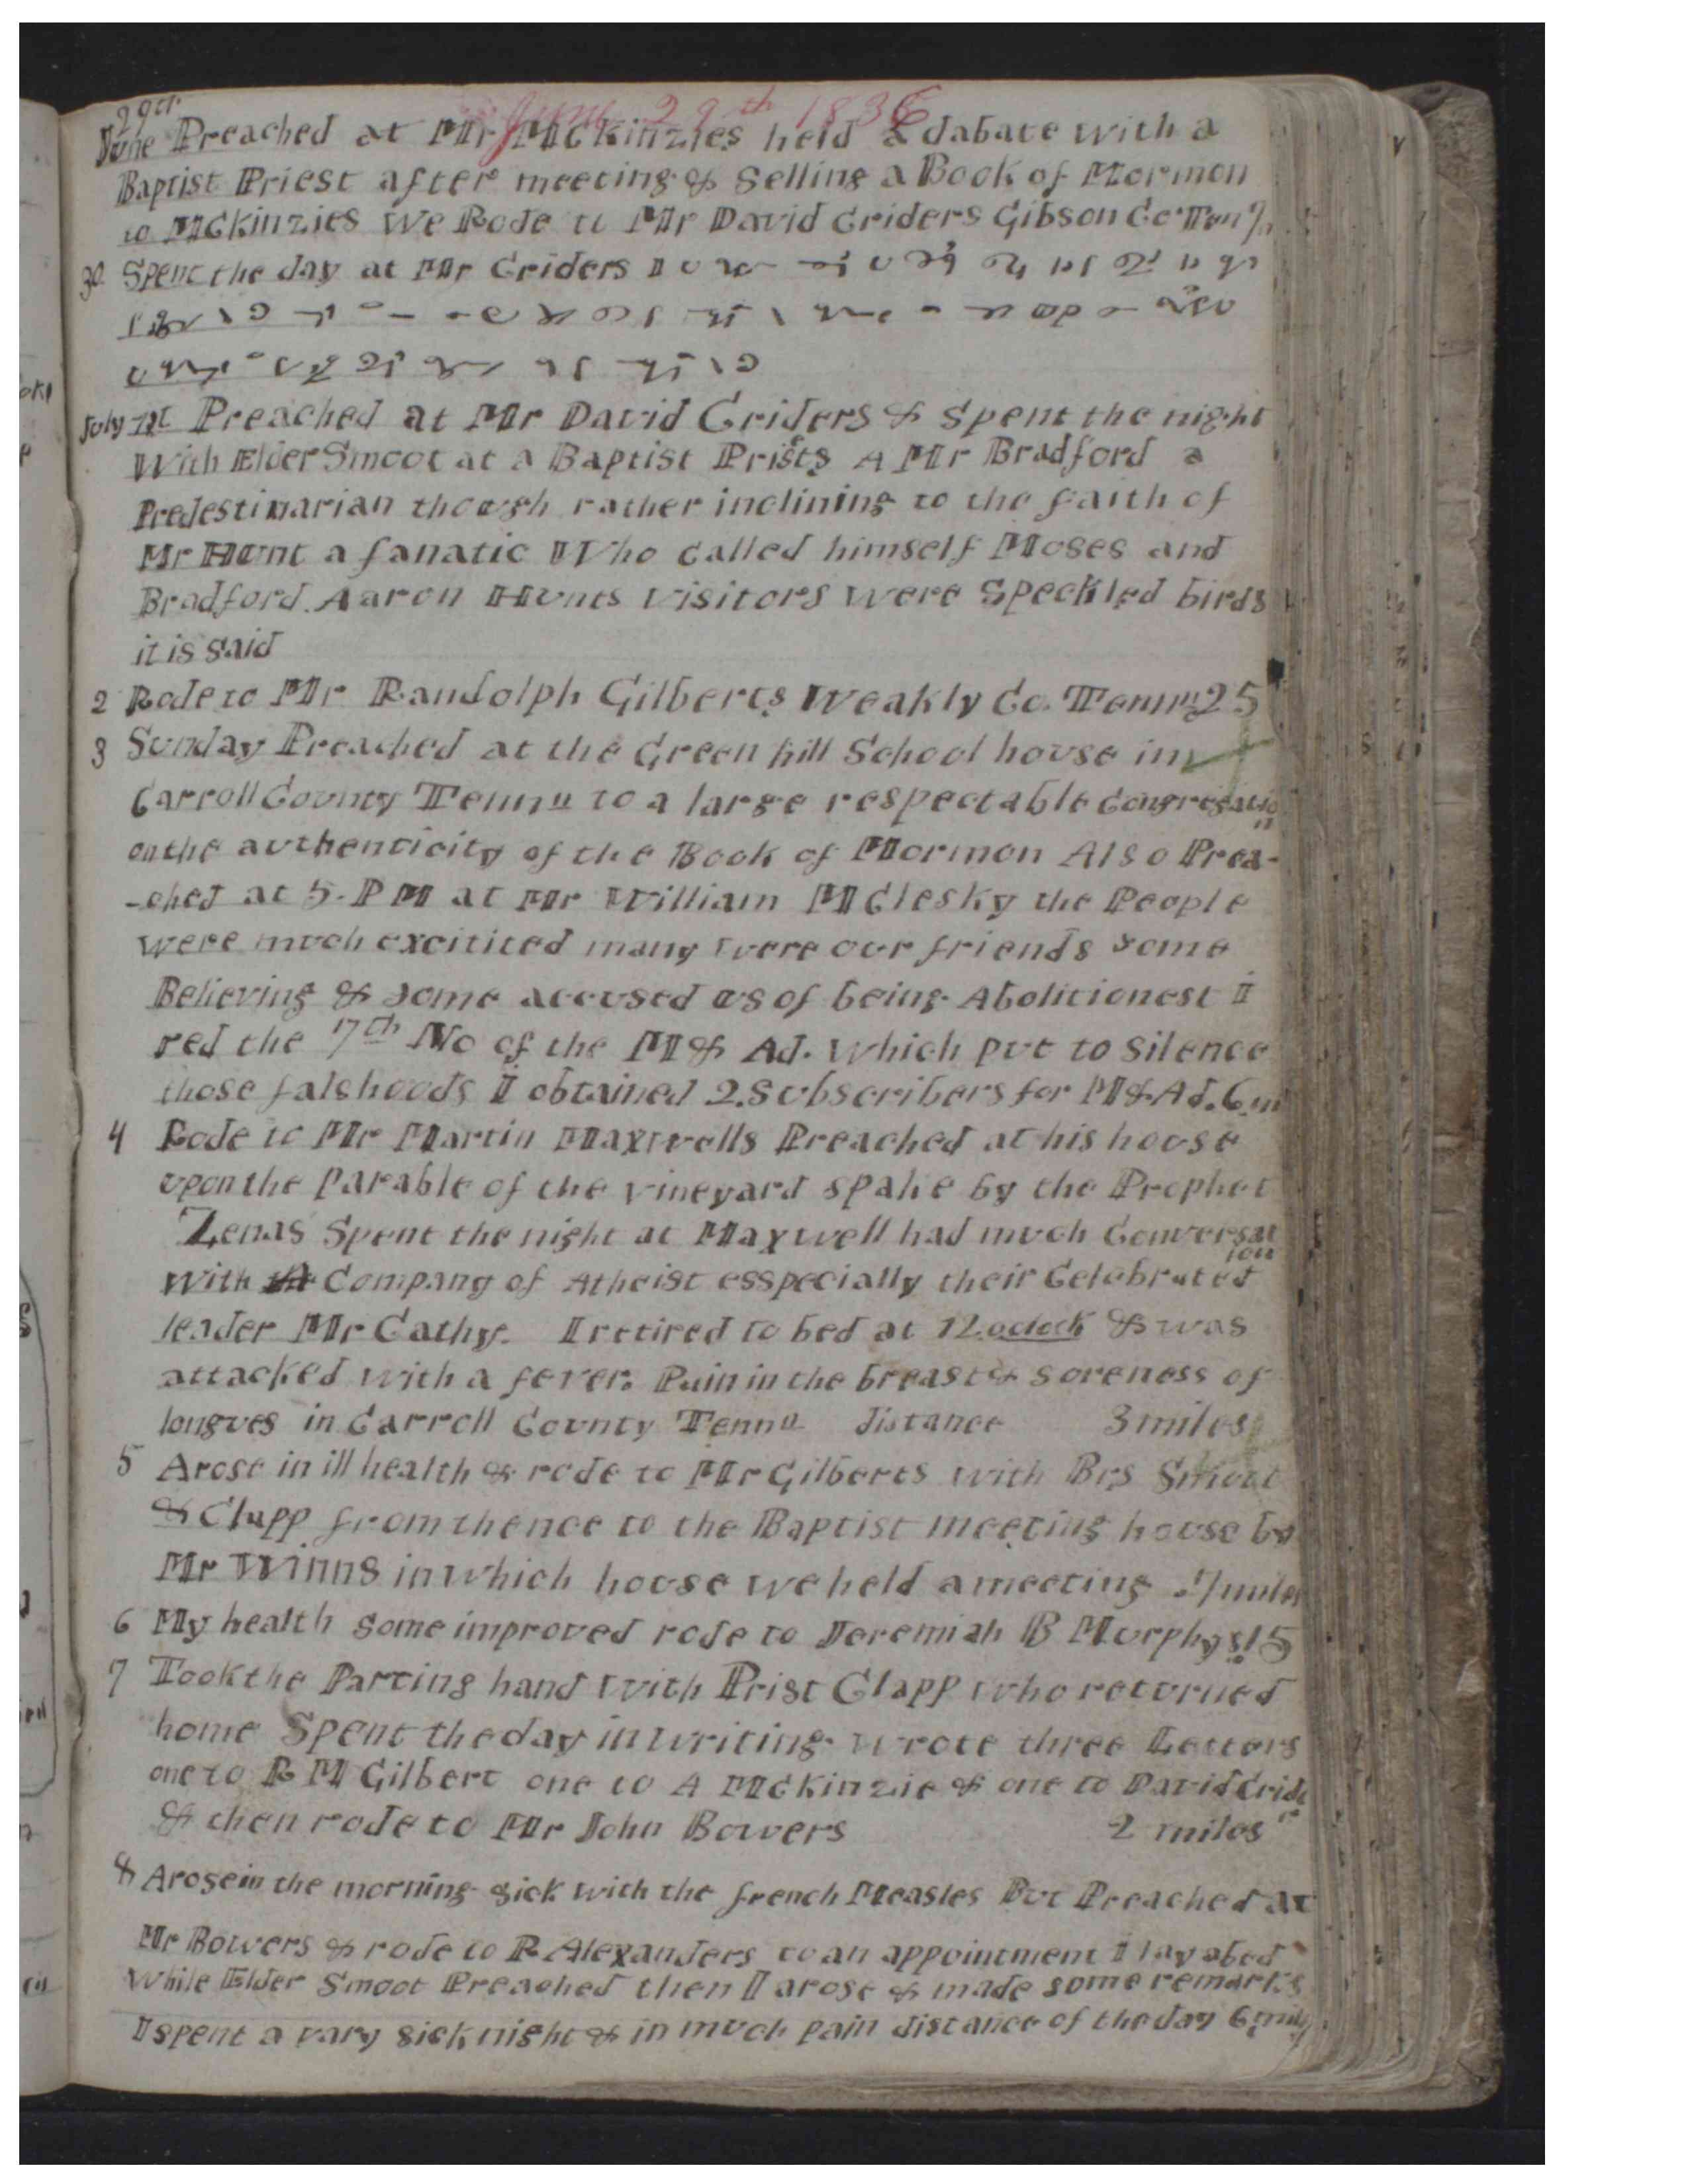 June 29th 1836
29th
June Preached at Mr McKinzies held a dabate with a
Baptist Priest after meeting & Selling a Book of Mormon
to McKinzies We Rode to Mr David Criders Gibson Co Ten
30 Spent the day at Mr Criders I
July 1st Preached at Mr David Criders & Spent the night
With Elder Smoot at a Baptist Priests A Mr Bradford a
Predestinarian though rather inclining to the faith of
Mr Hunt a fanatic Who called himself Moses and
Bradford Aaron Hunts visitors were Speckled birds
it is said
2 Rode to Mr Randolph Gilberts Weakly Co. Tenn 25
3 Sunday Preached at the Green hill School house in
Carroll County Tenn to a large respectable congregation
on the authenticity of the Book of Mormon Also Prea-
-ched at 5. PM at Mr William McClesky the People
were much excitited many were our friends some
Believing & some accused us of being Abolitionest I
red the 17th No of the M & Ad. which put to silence
those falshoods I obtained 2 Subscribers for M & Ad. 6 m
4 Rode to Mr Martin Maxwells Preached at his house
upon the Parable of the vineyard spake by the Prophet
Zenas Spent the night at Maxwell had much Conversation
with Company of Atheist esspecially their Celebrated
leader Mr Cathy. I retired to bed at 12 oclock & was
attacked with a fever. Pain in the breast & soreness of
longues in Carroll County Tenn distance 3 miles
5 Arose in ill health & rode to Mr Gilberts with Brs Smoot
& Clapp from thence to the Baptist meeting house by
Mr Winns in which house we held a meeting 7 miles
6 My health some improved rode to Jeremiah B Murphys 15
7 Took the Parting hand with Prist Clapp who returned
home Spent the day in writing wrote three Letters
one to R M Gilbert one to A McKinzie & one to David Crider
& then rode to Mr John Bowers 2 miles
8 Arose in the morning sick with the french Measles But Preached at
Mr Bowers & rode to R Alexanders to an appointment I lay abed
While Elder Smoot Preached then I arose & made some remarks
I spent a vary sick night & in much pain distance of the day 6 mils